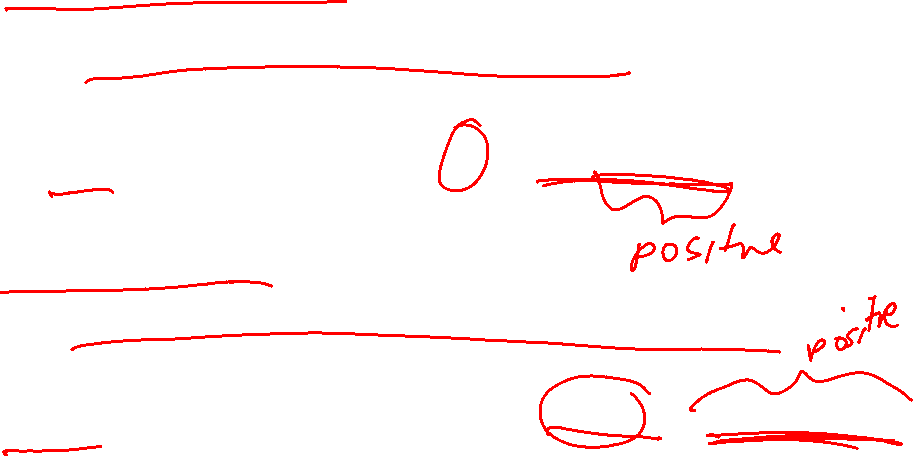 positive
positive